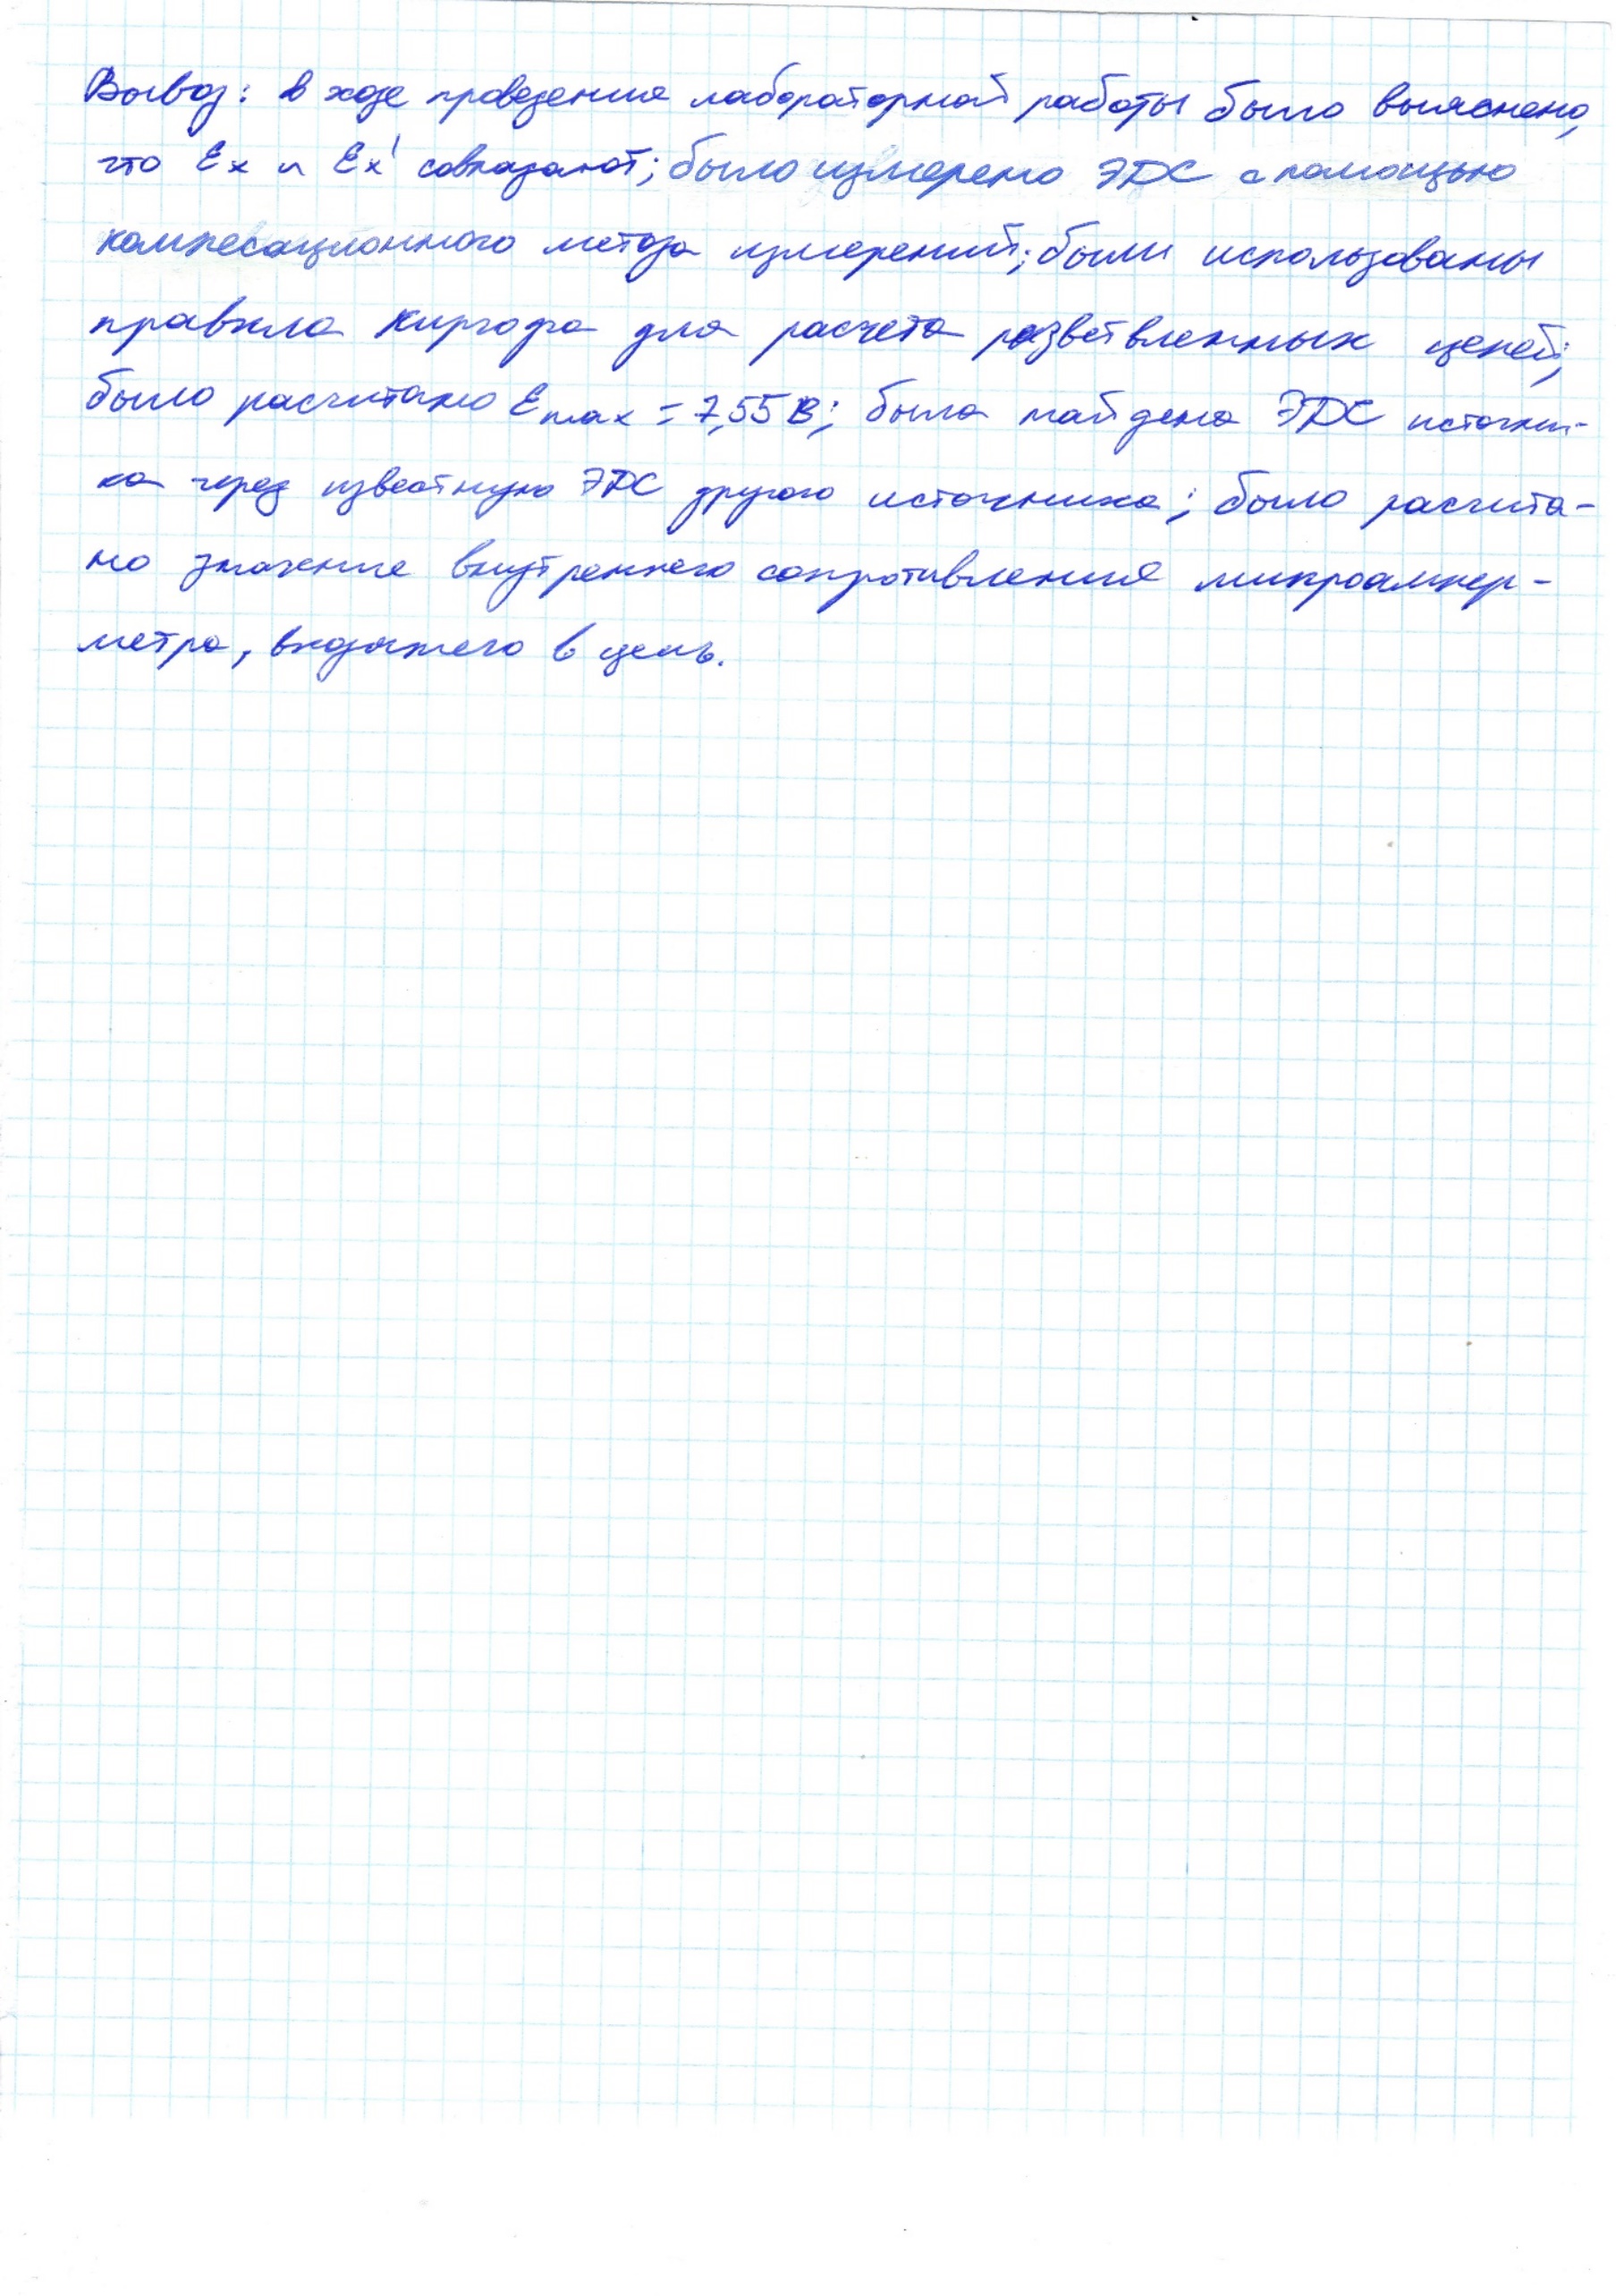 Вывод: в ходе проведения лабораторной работы было выяснено,
что Ɛx и Ɛx' совпадают; было измерено ЭДС с помощью
компесационного метода измерений; были использованы
правила Киргофа для расчета разветвленных цепей;
было расчитано Ɛmax = 7,55 В; была найдена ЭДС источни-
ка через известную ЭДС другого источника; было расчита-
но значение внутреннего сопротивления микроампер-
метра, входящего в цепь.